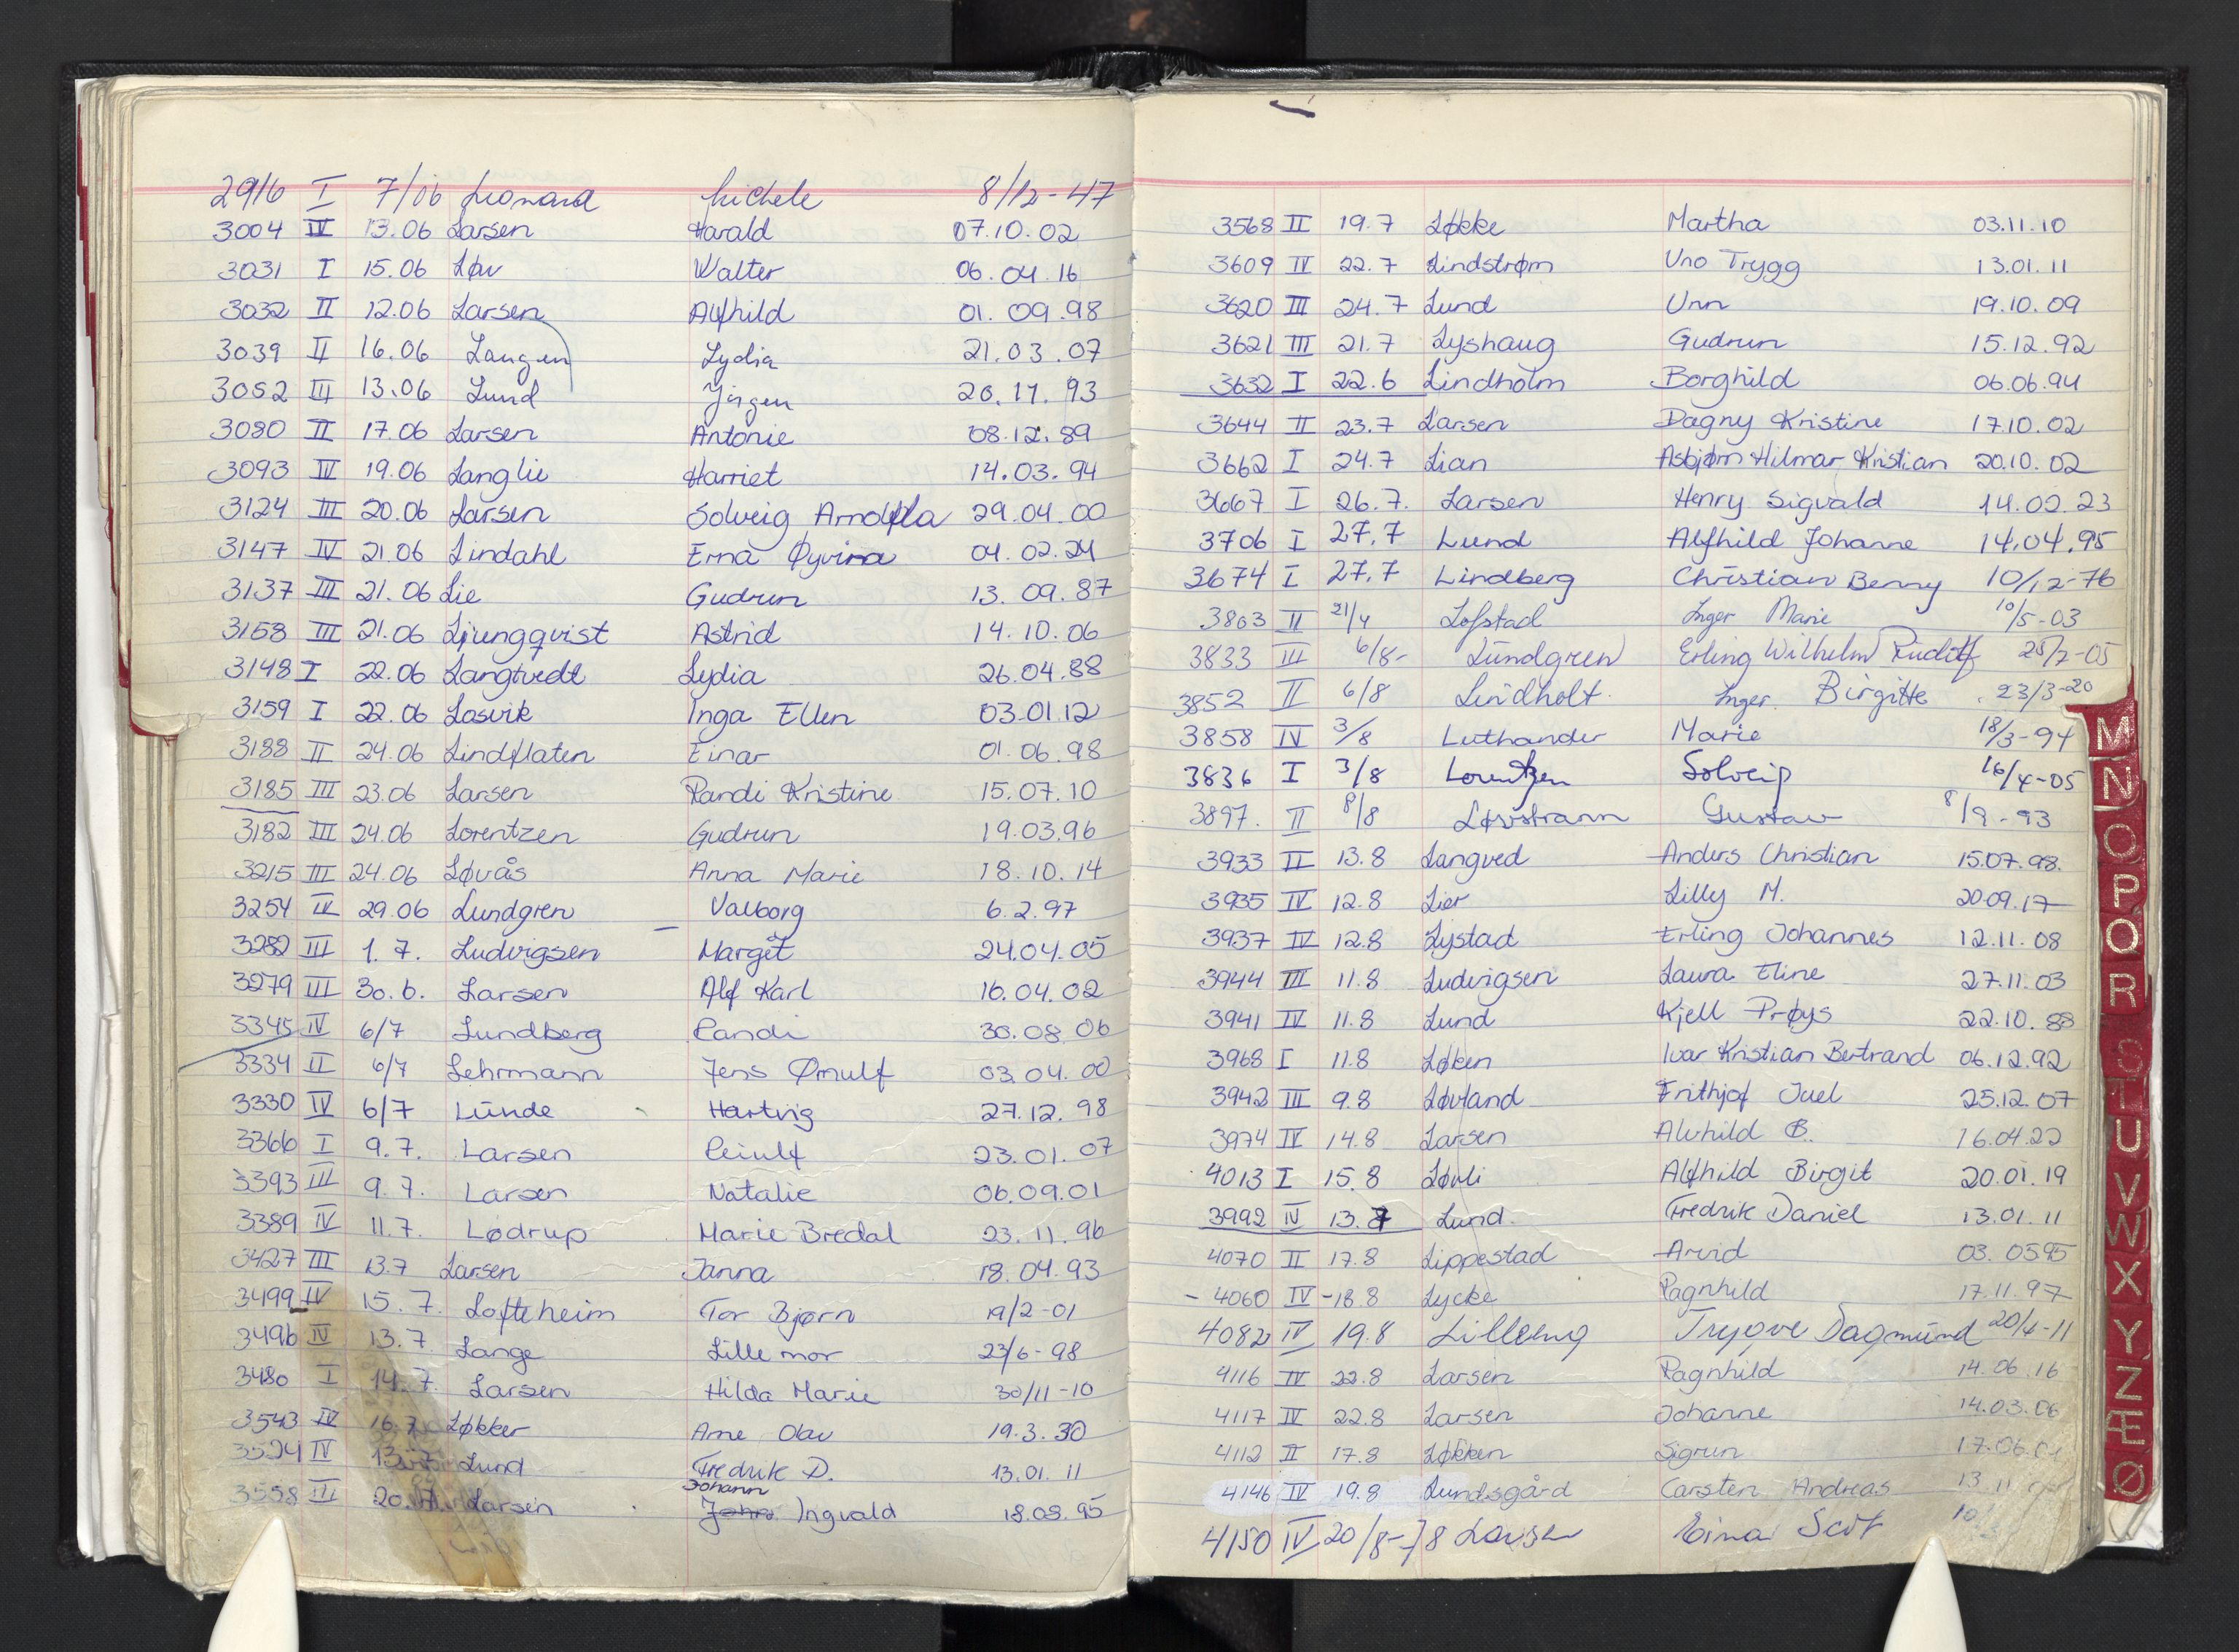 2916 I 7/06 Leonard Michele 8/12-47
3004 IV 13.06 Larsen Harald 07.10.02
3031 I 15.06 Løv Walter 06.04.16
3032 II 12.06 Larsen Alfhild 01.09.98
3039 II 16.06 Langen Lydia 21.03.07
3052 III 13.06 Lund Jörgen 20.11.93
3080 II 17.06 Larsen Antonie 08.12.89
3093 IV 19.06 Langlie Harriet 14.03.94
3124 III 20.06 Larsen Solveig 29.04.00
3147 IV 21.06 Lindahl Erna Øyvina 04.02.24
3137 III 21.06 Lie Gudrun 13.09.87
3158 III 21.06 Ljungqvist Astrid 14.10.06
3148 I 22.06 Langtvedt Lydia 26.04.88
3159 I 22.06 Losvik Inga Ellen 03.01.12
3188 II 24.06 Lindflaten Einar 01.06.98
3185 III 23.06 Larsen Randi Kristine 15.07.10
3182 III 24.06 Lorentzen Gudrun 19.03.96
3215 III 24.06 Løvås Anna Marie 18.10.14
3254 IV 29.06 Lundgren Valborg 6.2.97
3282 III 1.7. Ludvigsen Margit 24.04.05
3279 III 30.6. Larsen Alf Karl 16.04.02
3345 IV 6/7 Lundberg Randi 30.08.06
3334 II 6/7 Lehrmann Jens Ørnulf 03.04.00
3330 IV 6/7 Lunde Hartvig 27.12.98
3366 I 9.7. Larsen Reiulf 23.01.07
3393 III 9.7. Larsen Natalie 06.09.01
3389 IV 11.7. Lødrup Marie Bredal 23.11.96
3427 III 13.7 Larsen Janna 18.04.93
3499 IV 15.7. Lofteheim Tor Bjørn 19/2-01
3496 IV 13.7. Lange Lillemor 23/6-98
3480 I 14.7. Larsen Hilda Marie 30/11-10
3543 IV 16.7 Løkker Arne Olav 19.3.30
3524 IV Lund Fredrik D. 13.01.11
Johann
3558 III 20. Larsen John Ingvald 18.08.95
3568 II 19.7 Løkke Martha 03.11.10
3609 IV 22.7 Lindstrøm Uno Trygg 13.01.11
3620 III 24.7 Lund Unn 19.10.09
3621 III 21.7 Lyshaug Gudrun 15.12.92
3632 I 22.6 Lindholm Borghild 06.06.94
3644 II 23.7 Larsen Dagny Kristine 17.10.02
3662 I 24.7 Lian Asbjørn Hilmar Kristian 20.10.02
3667 I 26.7. Larsen Henry Sigvald 14.02.23
3706 I 27.7 Lund Alfhild Johanne 14.04.95
3674 I 27.7 Lindberg Christian Benny 10/12-76
3803 II 21/4 Lofstad Inger Marie 10/5-03
3833 III 6/8- Lundgren Erling Wilhelm Rudolf 25/7-05
3852 II 6/8 Lindholt Inger Birgitte 23/3-20
3858 IV 3/8 Luthander Marie 18/3-94
3836 I 3/8 Lorentzen Solveig 16/4-05
3897. II 8/8 Løvstrann Gustav 8/9-93
3933 II 13.8 Langved Anders Christian 15.07.98.
3935 IV 12.8 Lier Lilly M. 20.09.17
3937 IV 12.8 Lystad Erling Johannes 12.11.08
3944 III 11.8 Ludvigsen Laura Eline 27.11.03
3941 IV 11.8 Lund Kjell Prøys 22.10.88
3968 I 11.8 Løken Ivar Kristian Bertrand 06.12.92
3942 III 9.8 Løvland Frithjof Juel 25.12.07
3974 IV 14.8 Larsen Alvhild B. 16.04.22
4013 I 15.8 Løvli Alfhild Birgit 20.01.19
3992 IV 13.7 Lund Fredrik Daniel 13.01.11
4070 II 17.8 Lippestad Arvid 03.0595
- 4060 IV -18.8 Lycke Ragnhild 17.11.97
4082 IV 19.8 Lilleeng Trygve Dagmund 20/4-11
4116 IV 22.8 Larsen Ragnhild 14.06.16
4117 IV 22.8 Larsen Johanne 14.03.06
4112 II 17.8 Løkken Sigrun 17.06.
4146 IV 19.8 Lundsgård Carsten Andreas 13 11
4150 IV 20/8-78 Larsen Einar 10
M
N
O
P
Q
R
S
T
U
V
W
X
Y
Z
Æ
Ø